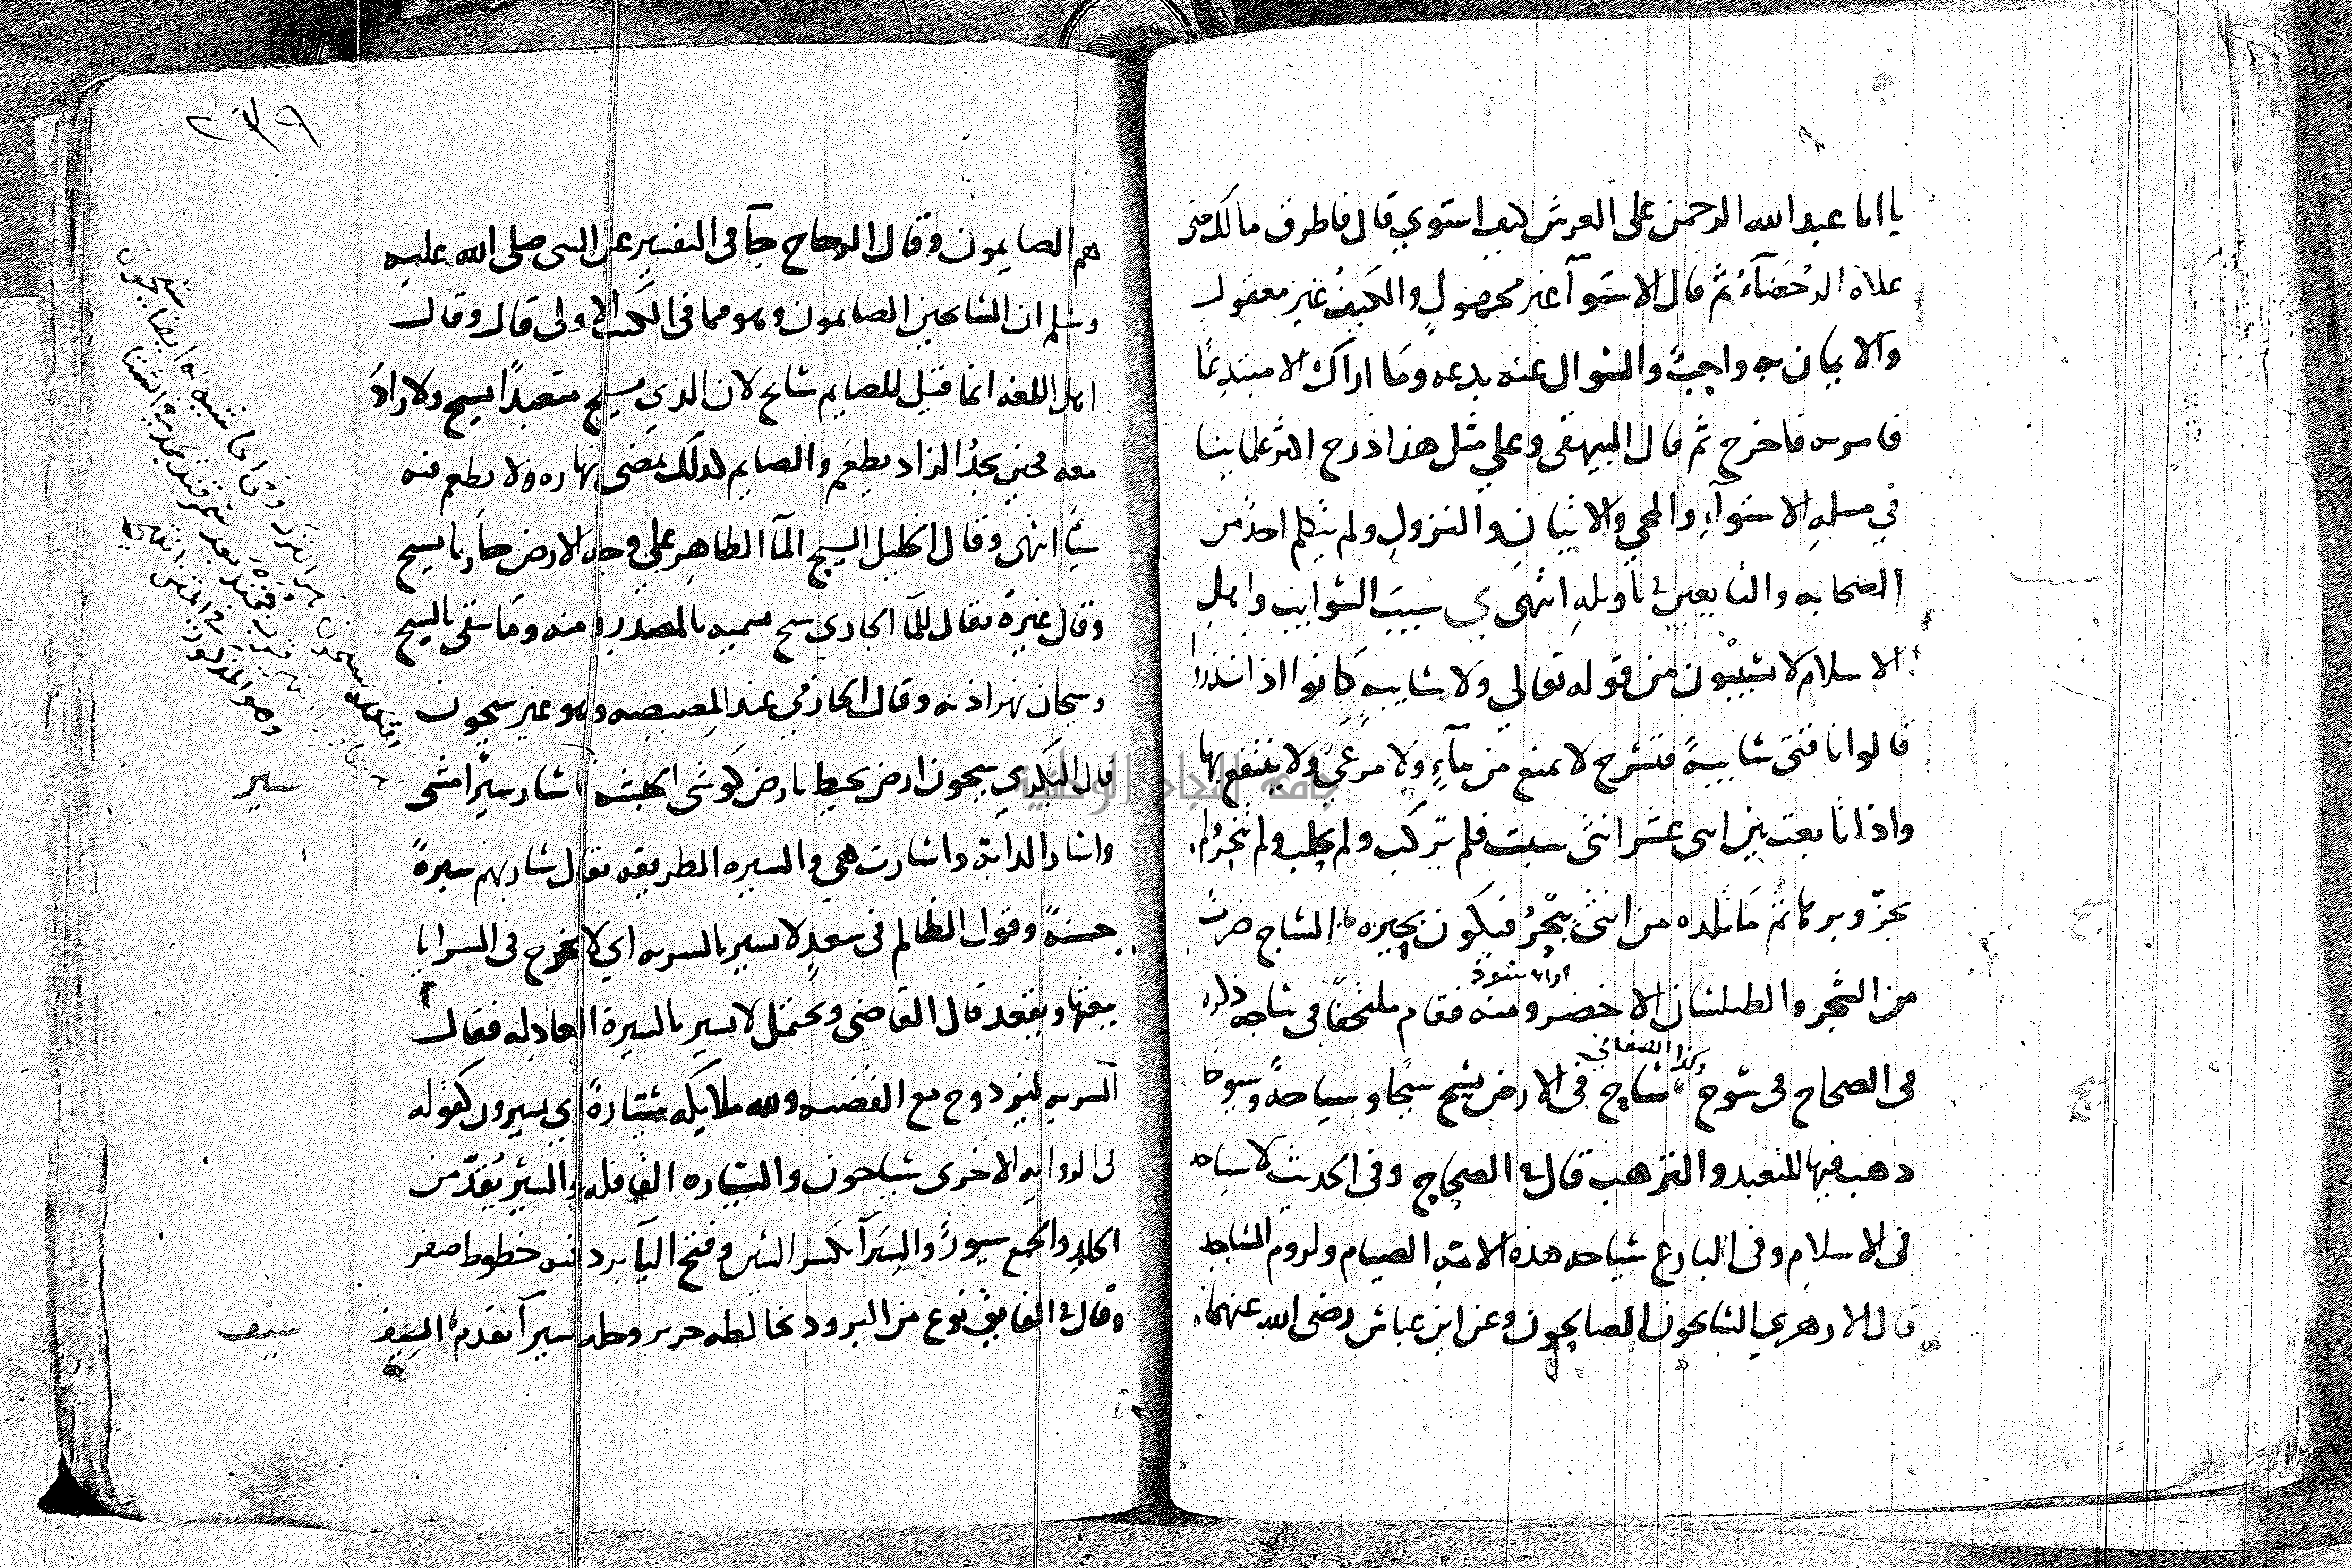 يا ابا عبد الله الرحمن على العرش كيف استوي قال فاطرق مالك حتى
علاه الرُحَضَآءُ ثم قال الاستوآ غير مجهولٍ والكيفُ غير معقول
والايمان به واجبٌ والسوال عنه بدعه ومَا اراك الا مبتدعًا
فامر به فاخرج ثم قال البيهقي وعلي مثل هذا درج اكثر علماينا
في مسلهِ الاستوآءِ والمجي والاتيان والنزولِ ولم يتكلم احدٌ من
الصحابه والتابعين في تاويلهِ انتهى سيبَ السوايب واهل
الاسلام لا يسَيّبون من قوله تعالى ولا سايبه كانوا اذا نذروا
قالوا ناقتى سايبةً فتسرح لا تمنع من مآءٍ ولا مرعَىً ولا ينتفع بها
واذا تابعت بين اثنى عشر انثى سيبت فلم تركب ولم تحلب ولم تنحر ولم
يجزّ وبرها ثم مَا تلده من انثى يبحَّرُ فيكون بحيره الساج ضربٌ
من الشجر والطيلسان الاخضر ومنه فقام ملتحفًا في ساجه ذكره
او الاسود
في الصحاح في سوج ساح في الارض يسيح سيحًا وسياحةً وسيوحا
وكذا الصغاني
ذهب فيها للتعبد والترهب قاله الصحاح وفي الحديث لا سياحه
في الاسلام وفي البارع سياحه هذه الامه الصيام ولزوم المساجد
قال الازهري السايحون الصايمون وعن ابن عباس رضى الله عنهما
سيب
سيح
سيح
٢٣٩
هم الصايمون وقال الزجاج جآ في التفسير عن النبى صلى الله عليه
وسلم ان السايحين الصايمون وهو مما في الكتب الاولى قال وقال
اهل اللغه انما قيل للصايم سايح لان الذي يسيح متعبدًا يسيح ولا زادَ
معه فحين يجدُ الزاد يطعم والصايم كذلك يمضى نهاره ولا يطعم فيه
شيًا انتهى وقال الخليل السيح المآ الظاهر على وجه الارض جاريا يسيح
وقال غيره يقال للمآ الجاري سيح سميه بالمصدر ومنه ومَا سقى بالسيح
وسيحان نهر اذنه وقال الحازمي عند المصيصه وهو غير سيحون
قال البكري سيحون ارض يحيط بارض كوش الحبشه سار سيرًا مشى
وسار الدابة وسارت هي والسيره الطريقه يقال سار بهم سيرةً
حسنةً وقول الظالم في سعدٍ لا يسير بالسريه اي لا يخرج في السرايا
يبعثها ويقعد قال القاضى ويحتمل لا يسير بالسيرة العادله فقال
السريه ليزدوج مع القضيه ولله ملايكه سيّارةً اي يسيرون كقوله
في الروايه الاخرى سياحون والسياره القافله والسير يُقدّ من
الجلدِ والجمع سيورٌ والسِيَرآ بكسر السين وفتح اليآ برد فيه خطوط صفر
وقال في الفايق نوع من البرود يخالطه حرير وحله سيرآ تقدم السيف
سير
سيف